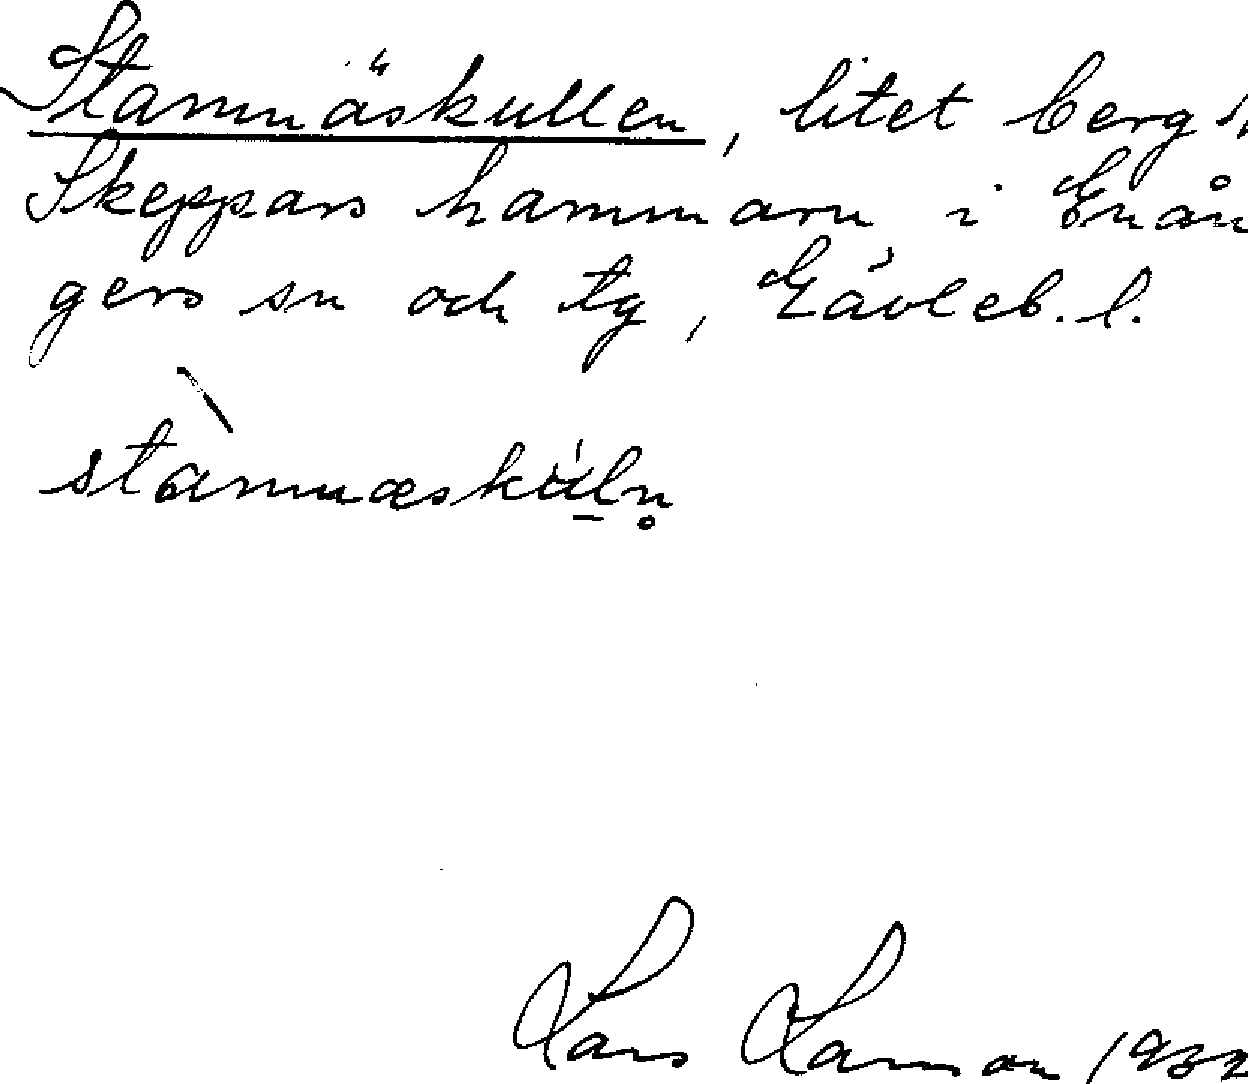 Stamnäskullen, litet berg
Skeppars hammarn i Enån
gers sn och tg, Gävleb. l.
stamnæsküln̥
Lars Larsson 1932